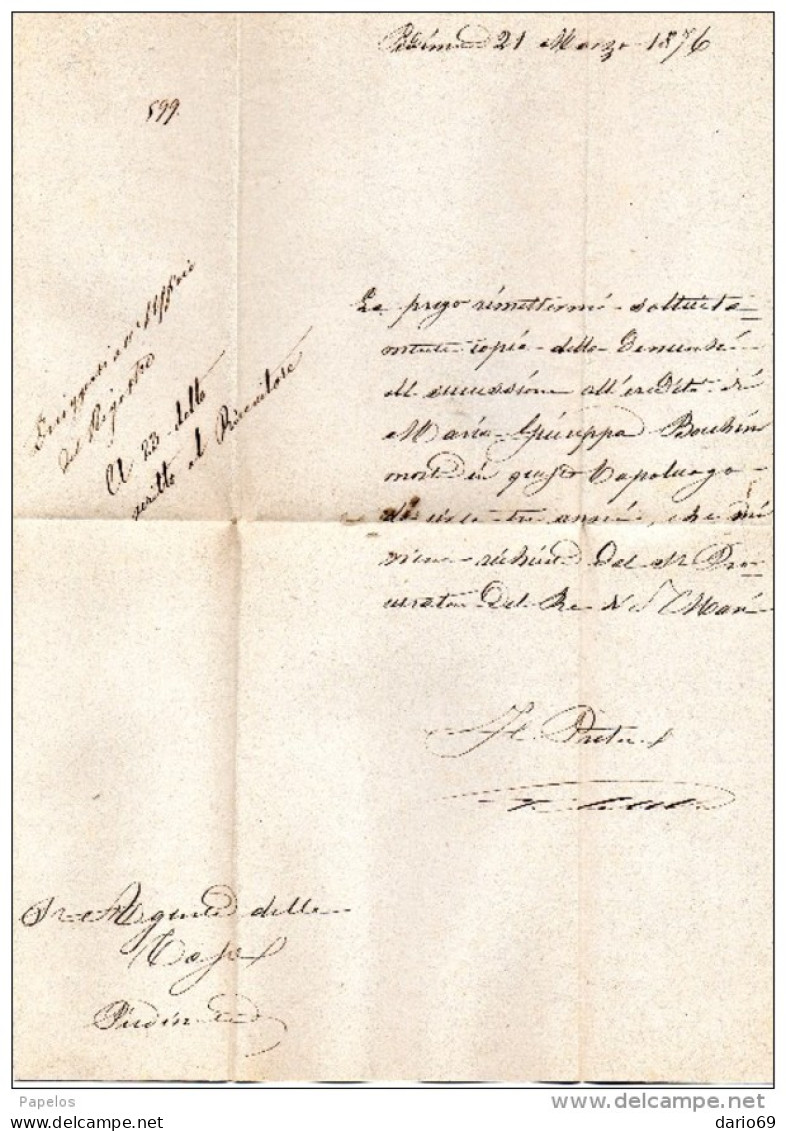 21 Marzo 1876
599.
Registro
Il 23 detto
scritto al
La prego rimettermi sollecita=
mente copia della Denunzia
di successione all'eredità di
Maria Giuseppa
morta in questo Capoluogo
da circa tre anni, che mi
viene richiesta dal Sr Pro=
curatore del Re di
Il Pretore
Sr Agente delle
Tasse
Papelos
www.delcampe.net
dario69